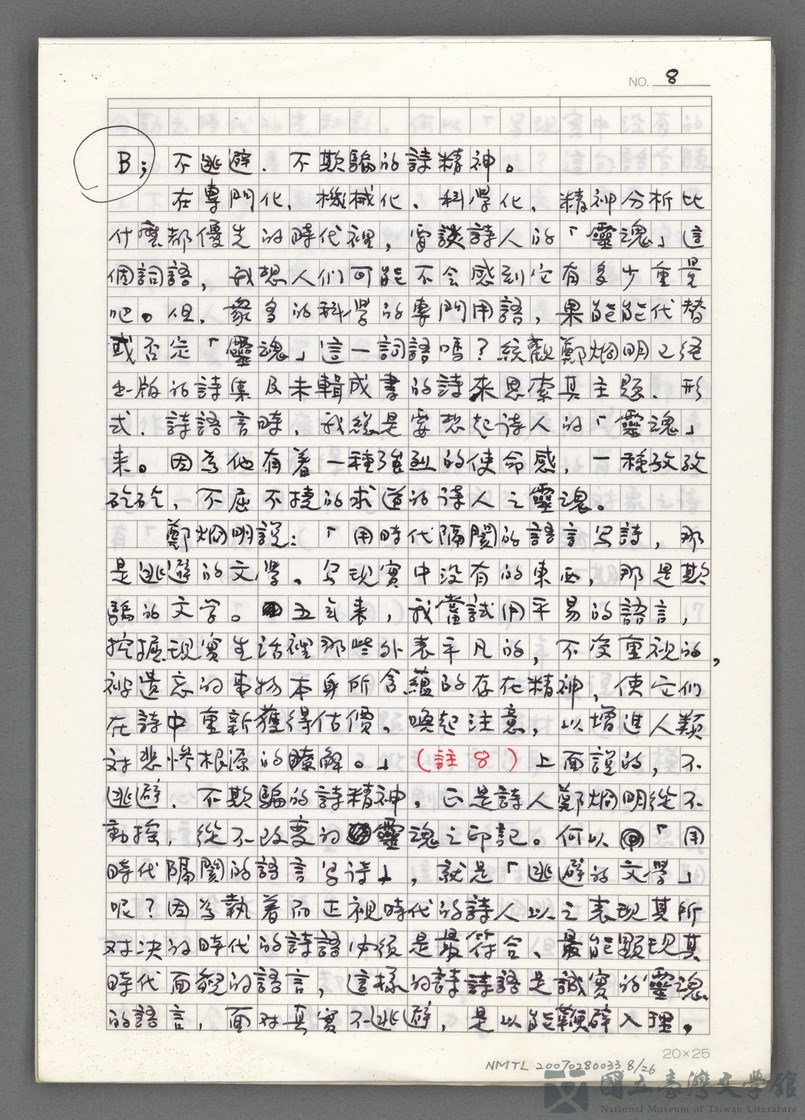 NO. 8
B; 不逃避、不欺騙的詩精神。
在專門化、機械化、科學化、精神分析比
什麼都優先的時代裡,當談詩人的「靈魂」這
個詞語,我想人们可能不会感到它有多少重量
吧。但、眾多的科學的專門用語,果能能代替
或否定「靈魂」這一詞語嗎?綜觀鄭烱明已經
出版的詩集及未輯成書的詩來思索其主題、形
式、詩語言時,我總是要想起诗人的「靈魂」
来。因為他有着一種强烈的使命感,一種孜孜
矻矻,不屈不撓的求道的诗人之靈魂。
鄭烱明說:「用時代隔閡的語言写詩,那
是逃避的文學。写現實中没有的東西,那是欺
騙的文学。五年来,我嘗試用平易的語言,
挖掘現實生活裡那些外表平凡的,不受重视的,
被遺忘的事物本身所含蘊的存在精神,使它们
在詩中重新獲得估價、喚起注意,以增進人類
对悲惨根源的瞭解。」(註8)上面說的,不
逃避、不欺騙的詩精神,正是詩人鄭烱明從不
動搖,從不改变的靈魂之印記。何以「用
時代隔閡的語言写诗」,就是「逃避的文學」
呢?因為執着而正視時代的詩人以之表現其所
对决的時代的詩語必须是最符合、最能顯現其
時代面貌的語言,這樣的詩詩語是誠實的靈魂
的語言,面对真實不逃避,是以能鞭辟入理。
20×25
NMTL 20070280033 8/26
國立臺灣文學館
National Museum of Taiwan Literature